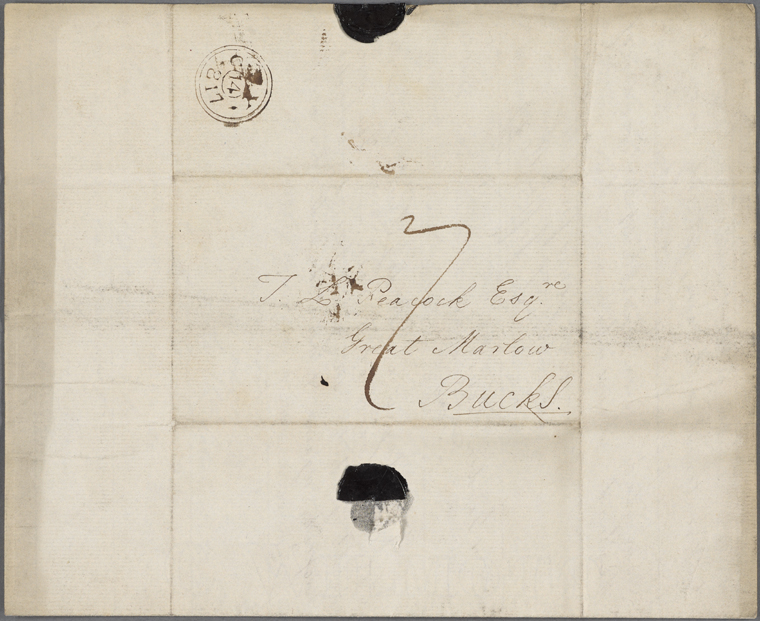 14
1817
7
T. L. Peacock Esq.re
Great Marlow
Bucks.